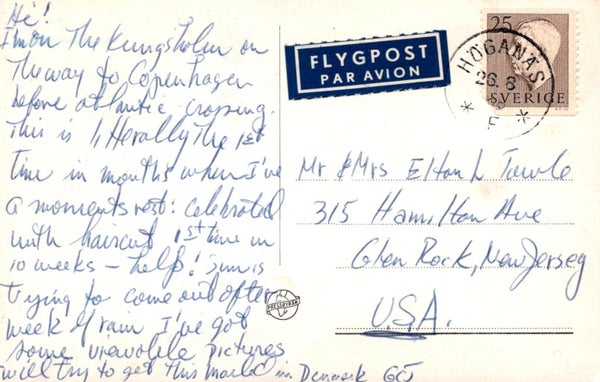 Hi!
I'm on the Kungsholm on
the way to Copenhagen
before atlantic crossing.
This is litterally the 1st
time in months when I've
a moments rest: celebrated
with haircut 1st time in
10 weeks – help! Sun is
trying to come out after
week of rain I've got
some viewable pictures
will try to get this mailed in Denmark
FLYGPOST
PAR AVION
25
SVERIGE
HÖGANÄS
26. 8
Mr & Mrs Elton L Towle
315 Hamilton Ave
Glen Rock, New Jersey
U.S.A.
PRESSBYRÅN